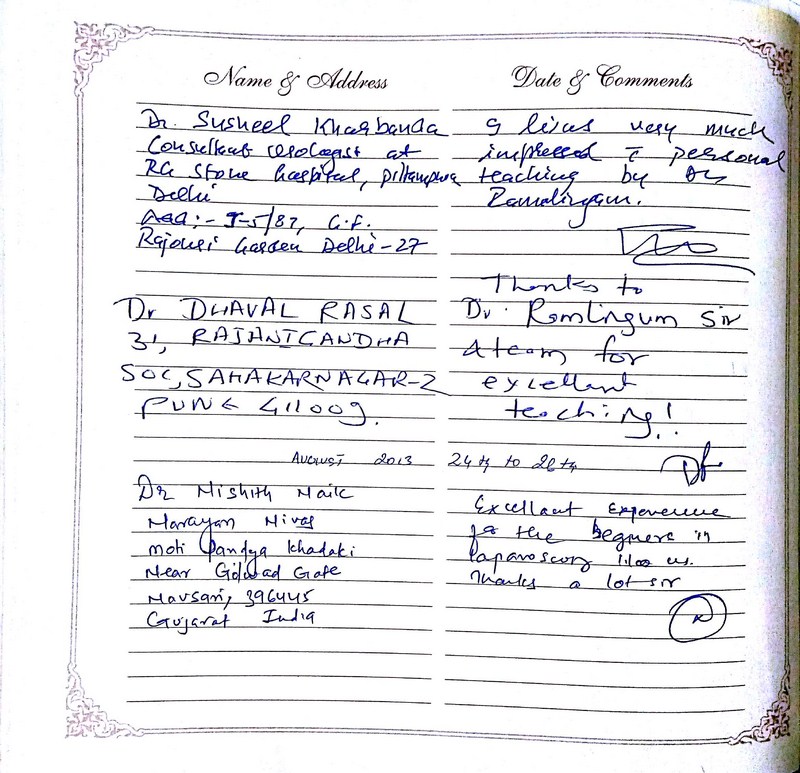 Name & Address
Date & Comments
Dr. Susheel Kharbanda
Consultant urologist at
RG Stone hospital, pitampura
Delhi
Add:- J-5/87, G.F.
Rajouri Garden Delhi-27
very much
impressed c̄ personal
teaching by Dr
Ramalingam.
Dr DHAVAL RASAL
31, RAJANIGANDHA
SOC, SAHAKARNAGAR-2
PUNE 411009.
Thanks to
Dr. Ramlingum Sir
& team for
excellant
teaching!
August 2013 24th to 28th
Dr Nishith Naik
Narayan Nivas
moti Pandya Khadaki
Near Golwad Gate
Navsari, 396445
Gujarat India
Excellant Experience
for the begners in
Laparoscopy like us.
Thanks a lot sir